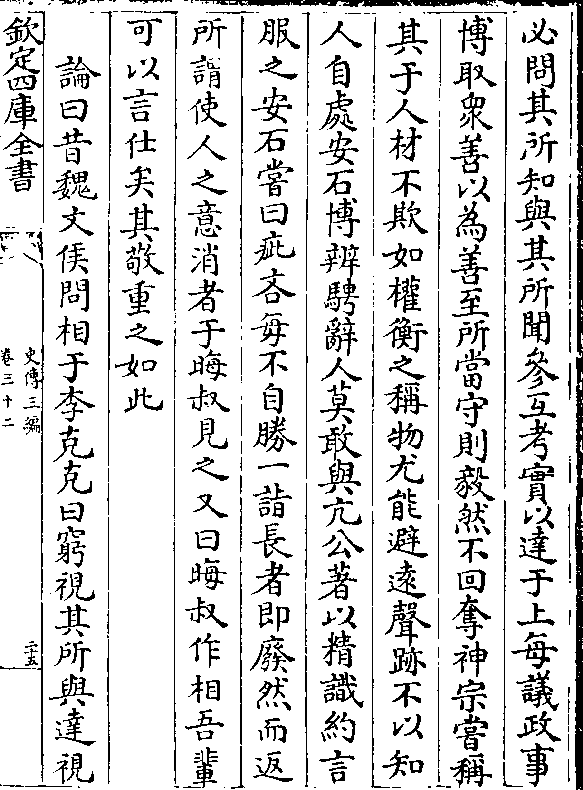 必問其所知與其所聞參互考實以達于上每議政事
博取衆善以為善至所當守則毅然不回奪神宗嘗稱
其于人材不欺如權衡之稱物尤能避逺聲跡不以知
人自處安石博辨騁辭人莫敢與亢公著以精識約言
服之安石嘗曰疵吝每不自勝一詣長者即廢然而返
所謂使人之意消者于晦叔見之又曰晦叔作相吾輩
可以言仕矣其敬重之如此
論曰昔魏文侯問相于李克克曰窮視其所與達視
欽定四庫全書
史傳三編
卷三十二
二十五